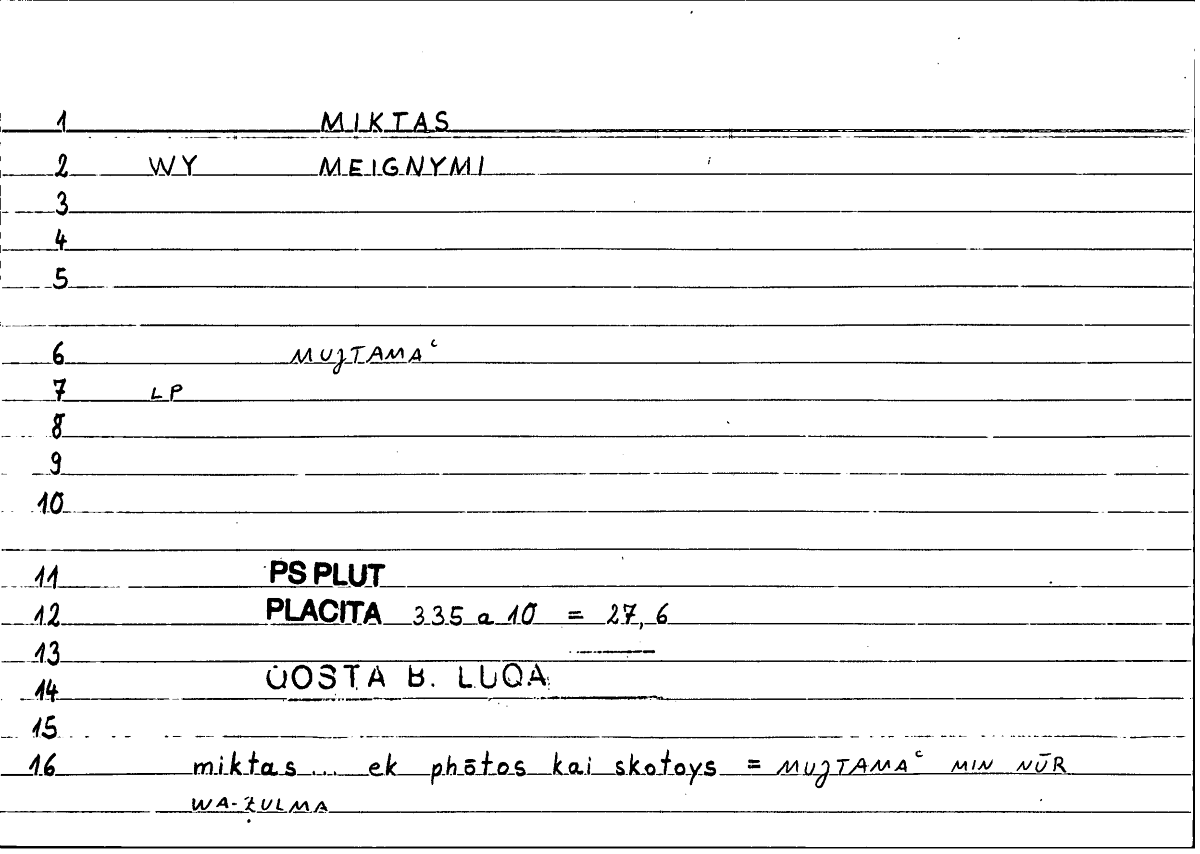 1 MIKTAS
2 WY MEIGNYMI
3
4
5
6 MUJTAMAᶜ
7 LP
8
9
10
11 PS PLUT
12 PLACITA 335 a 10 = 27, 6
13
14 QOSTA B. LUQA
15
16 miktas... ek phōtos kai skotoys = MUJTAMAᶜ MIN NŪR
WA-ẒULMA